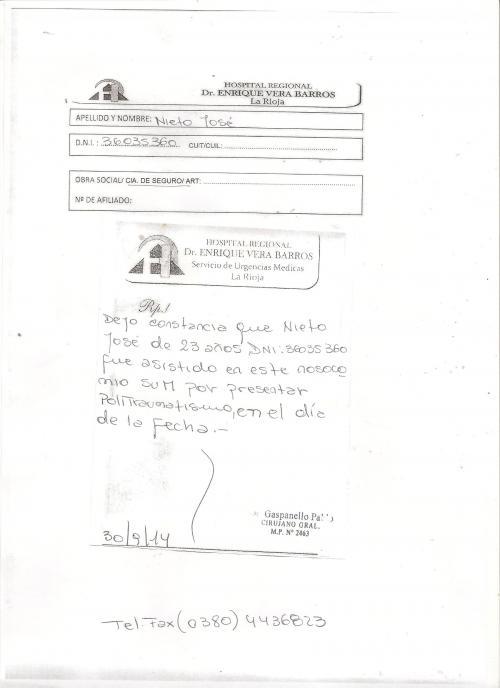 HOSPITAL REGIONAL
Dr. ENRIQUE VERA BARROS
La Rioja
APELLIDO Y NOMBRE: Nieto José
D.N.I. : 36035360 CUIT/CUIL:
OBRA SOCIAL/ CIA. DE SEGURO/ ART:
Nº DE AFILIADO:
HOSPITAL REGIONAL
Dr. ENRIQUE VERA BARROS
Servicio de Urgencias Medicas
La Rioja
Rp./
Dejo constancia que Nieto
José de 23 años DNI: 36035360
fue asistido en este nosoco
mio SUM por presentar
Politraumatismo, en el día
de la fecha.-
Gaspanello
CIRUJANO GRAL.
M.P. Nº 2463
30/9/14
Tel: Fax (0380) 4436823